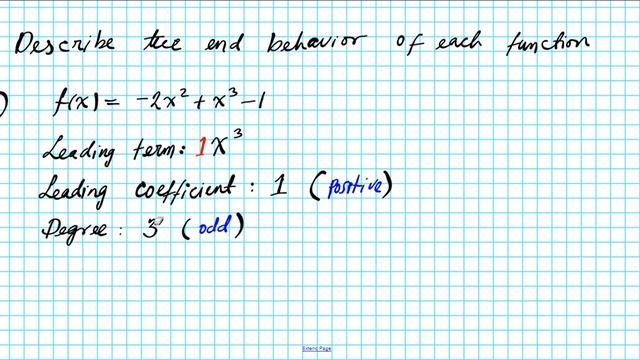 Describe the end behavior of each function
) f(x) = -2x² + x³ - 1
Leading term: 1x³
Leading coefficient: 1 (positive)
Degree: 3 (odd)
Extend Page